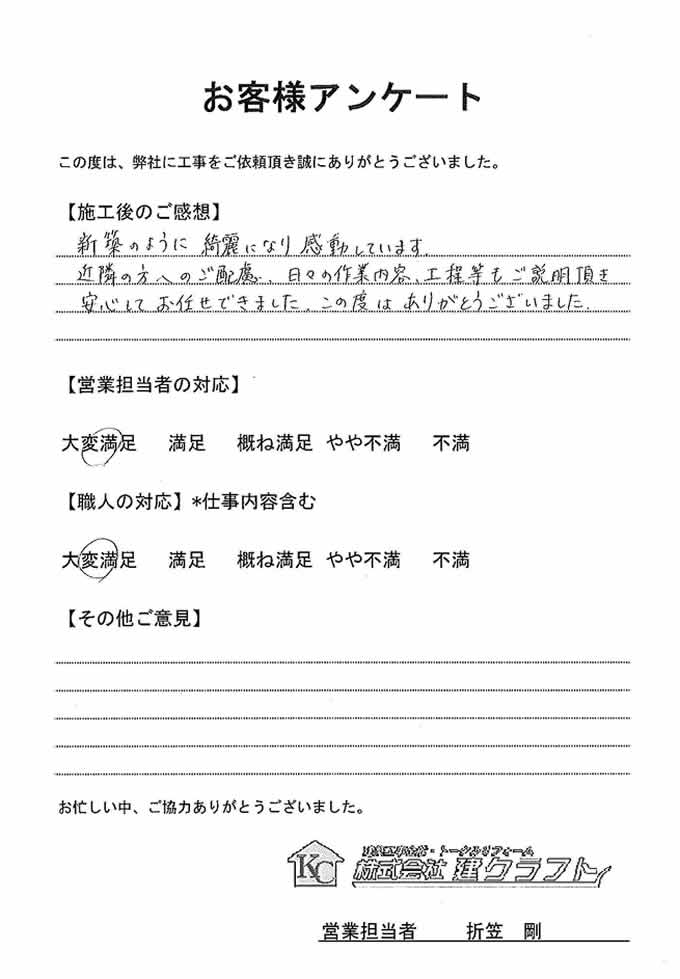 お客様アンケート
この度は、弊社に工事をご依頼頂き誠にありがとうございました。
【施工後のご感想】
新築のように 綺麗になり 感動しています。
近隣の方へのご配慮、日々の作業内容、工程等もご説明頂き
安心して お任せできました。この度は ありがとうございました。
【営業担当者の対応】
大変満足 満足 概ね満足 やや不満 不満
【職人の対応】*仕事内容含む
大変満足 満足 概ね満足 やや不満 不満
【その他ご意見】
お忙しい中、ご協力ありがとうございました。
KC
株式会社 建クラフト
営業担当者 折笠 剛